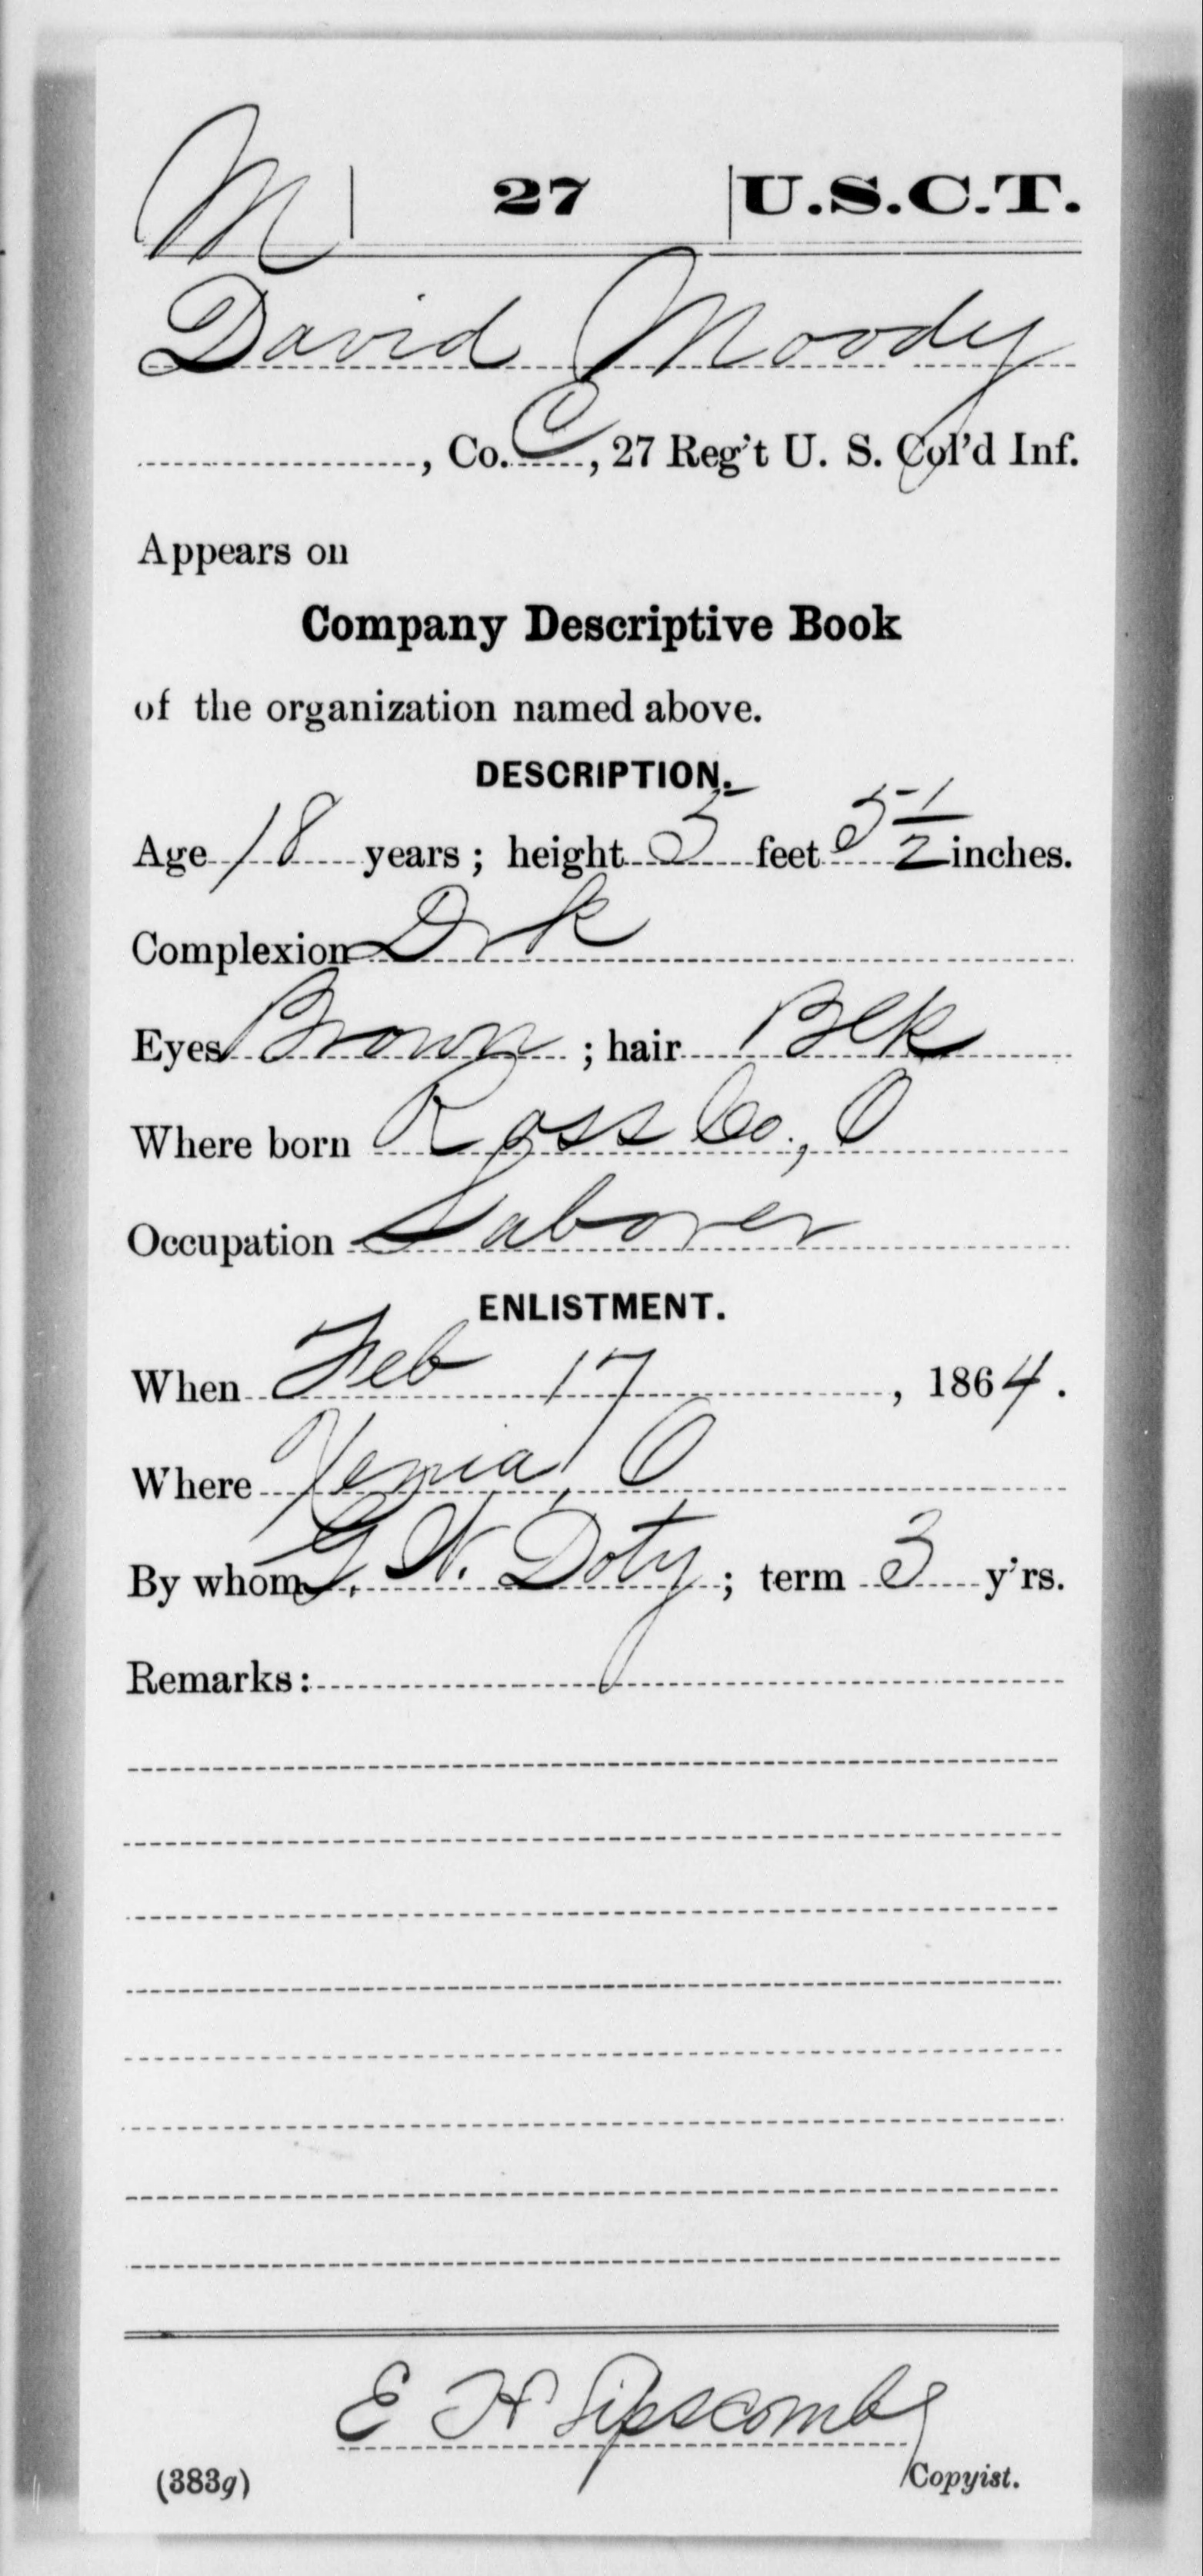 M | 27 | U.S.C.T.
David Moody
, Co. C, 27 Reg't U. S. Col'd Inf.
Appears on
Company Descriptive Book
of the organization named above.
DESCRIPTION.
Age 18 years; height 5 feet 5 1/2 inches.
Complexion Drk
Eyes Brown; hair Blk
Where born Ross Co., O
Occupation Laborer
ENLISTMENT.
When Feb 17, 1864.
Where Xenia, O
By whom G. W. Doty; term 3 y'rs.
Remarks:
E H Lipscomb
(383g) Copyist.